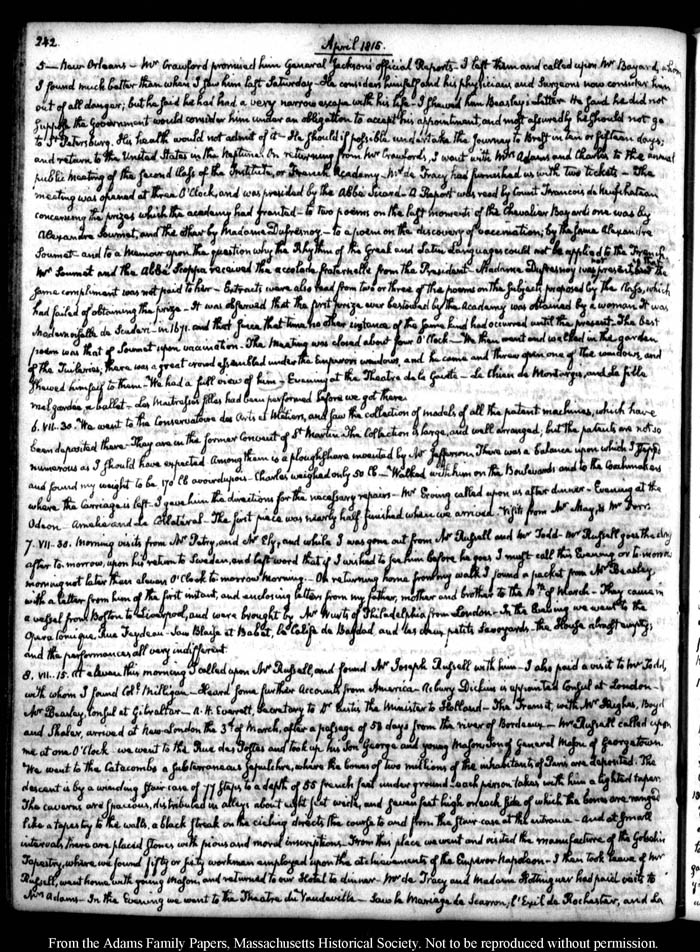 242.
April 1815.
5— New Orleans — Mr Crawford promised him General Jackson's official Reports — I left them and called upon Mr Bayard, whom
I found much better than when I saw him last Saturday — He considers himself and his physicians and Surgeons now consider him
out of all danger; but he said he had had a very narrow escape with his life — I shewed him Beasley's Letter. He said he did not
suppose the Government would consider him under an obligation to accept his appointment, and most assuredly he should not go
to St Petersburg. His health would not admit of it — He should if possible undertake the Journey to Brest in ten or fifteen days;
and return to the United States in the Neptune. On returning from Mr Crawford's, I went with Mrs Adams and Charles to the annual
public Meeting of the second Class of the Institute, or French Academy — Mr de Tracy had furnished us with two tickets — The
meeting was opened at three O'Clock, and was presided by the Abbé Sicard — A Report was read by Count Francois de Neufchateau
concerning the prizes which the academy had granted — to two poems on the last moments of the Chevalier Bayard; one was by
Alexandre Soumet, and the other by Madame Dufresnoy — to a poem on the discovery of vaccination; by the same Alexandre
Soumet — and to a Memoir upon the question why the Rhythm of the Greek and Latin Languages could not be applied to the French
Mr Soumet and the Abbé Scoppa received the accolade fraternelle from the President. Madame Dufresnoy was not present, but the
same compliment was not paid to her — Extracts were also read from two or three of the poems on the subjects proposed by the Class, which
had failed of obtaining the prize — It was observed that the first prize ever bestowed by the Academy was obtained by a woman. It was
Mademoiselle de Scuderi — in 1671. and that since that time no other instance of the same kind had occurred until the present — The best
poem was that of Soumet upon vaccination — The Meeting was closed about four O'Clock — We then went and walked in the garden
of the Tuileries, there was a great crowd assembled under the Emperor's windows, and he came and threw open one of the windows, and
shewed himself to them — We had a full view of him — Evening at the Theatre de la Gaité — Le Chien de Montargis, and La fille
mal gardée, a ballet — Les Maitresses filles had been performed before we got there.
6. VII. 30. We went to the Conservatoire des Arts et Metiers, and saw the collection of models of all the patent machines, which have
been deposited there. They are in the former Convent of St Martin. The Collection is large, and well arranged; but the patents are not so
numerous as I should have expected. Among them is a ploughshare invented by Mr Jefferson. There was a balance upon which I stepped
and found my weight to be 170 lb avoirdupois — Charles weighed only 50 lb — Walked with him on the Boulevards and to the Coachmakers
where the carriage is left — I gave him the directions for the necessary repairs — Mr Erving called upon us after dinner — Evening at the
Odeon — Amelie and Le Collateral — The first piece was nearly half finished when we arrived. Visits from Mr May, & Mr
7. VII. 30. Morning visits from Mr Petry, and Mr Ely; and while I was gone out from Mr Russell and Mr Todd — Mr Russell goes the day
after to-morrow, upon his return to Sweden, and left word that if I wished to see him before he goes I must call this Evening or to-morrow
morning not later than eleven O'Clock to morrow Morning — On returning home from my walk I found a packet from Mr Beasley,
with a letter from him of the first instant, and enclosing letters from my father, mother and brother to the 10th of March — They came in
a vessel from Boston to Liverpool, and were brought by Mr Wurts of Philadelphia from London — In the Evening we went to the
Opera Comique, Rue Feydeau — Jean Blaise et Babet, Le Calife de Bagdad, and les deux petits Savoyards — the House almost empty;
and the performances all very indifferent.
8. VII. 15. At eleven this morning I called upon Mr Russell, and found Mr Joseph Russell with him — I also paid a visit to Mr Todd,
with whom I found Coll. Milligan — Heard some further Accounts from America. Asbury Dickins is appointed Consul at London —
Mr Beasley, Consul at Gibraltar — A. H. Everett, Secretary to Dr Eustis the Minister to Holland — The Transit, with Mr Hughes, Boyd
and Shaler, arrived at New-London the 3d of March, after a passage of 58 days from the river of Bordeaux — Mr Russell called upon
me at one O'Clock — we went to the Rue des Postes and took up his Son George and young Mason, Son of General Mason of Georgetown.
We went to the Catacombs a Subterraneous Sepulchre, where the bones of two millions of the inhabitants of Paris are deposited. The
descent is by a winding stair case of 77 steps to a depth of 55 french feet under ground — each person takes with him a lighted taper.
The caverns are spacious, distributed in alleys about eight feet wide, and seven feet high on each side of which the bones are ranged
like a tapestry to the walls, a black streak on the cieling directs the course to and from the stair-case at the entrance — And at small
intervals, there are placed stones with pious and moral inscriptions — From this place we went and visited the manufacture of the Gobelin
Tapestry, where we found fifty or sixty workmen employed upon the atchievements of the Emperor Napoleon — I then took leave of Mr
Russell, went home with young Mason, and returned to our Hotel to dinner — Mr de Tracy and Madam Hottinguer had paid visits to
Mrs Adams — In the Evening we went to the Theatre du Vaudeville — Saw le Mariage de Scarron, l'Exil de Rochester, and La
From the Adams Family Papers, Massachusetts Historical Society. Not to be reproduced without permission.